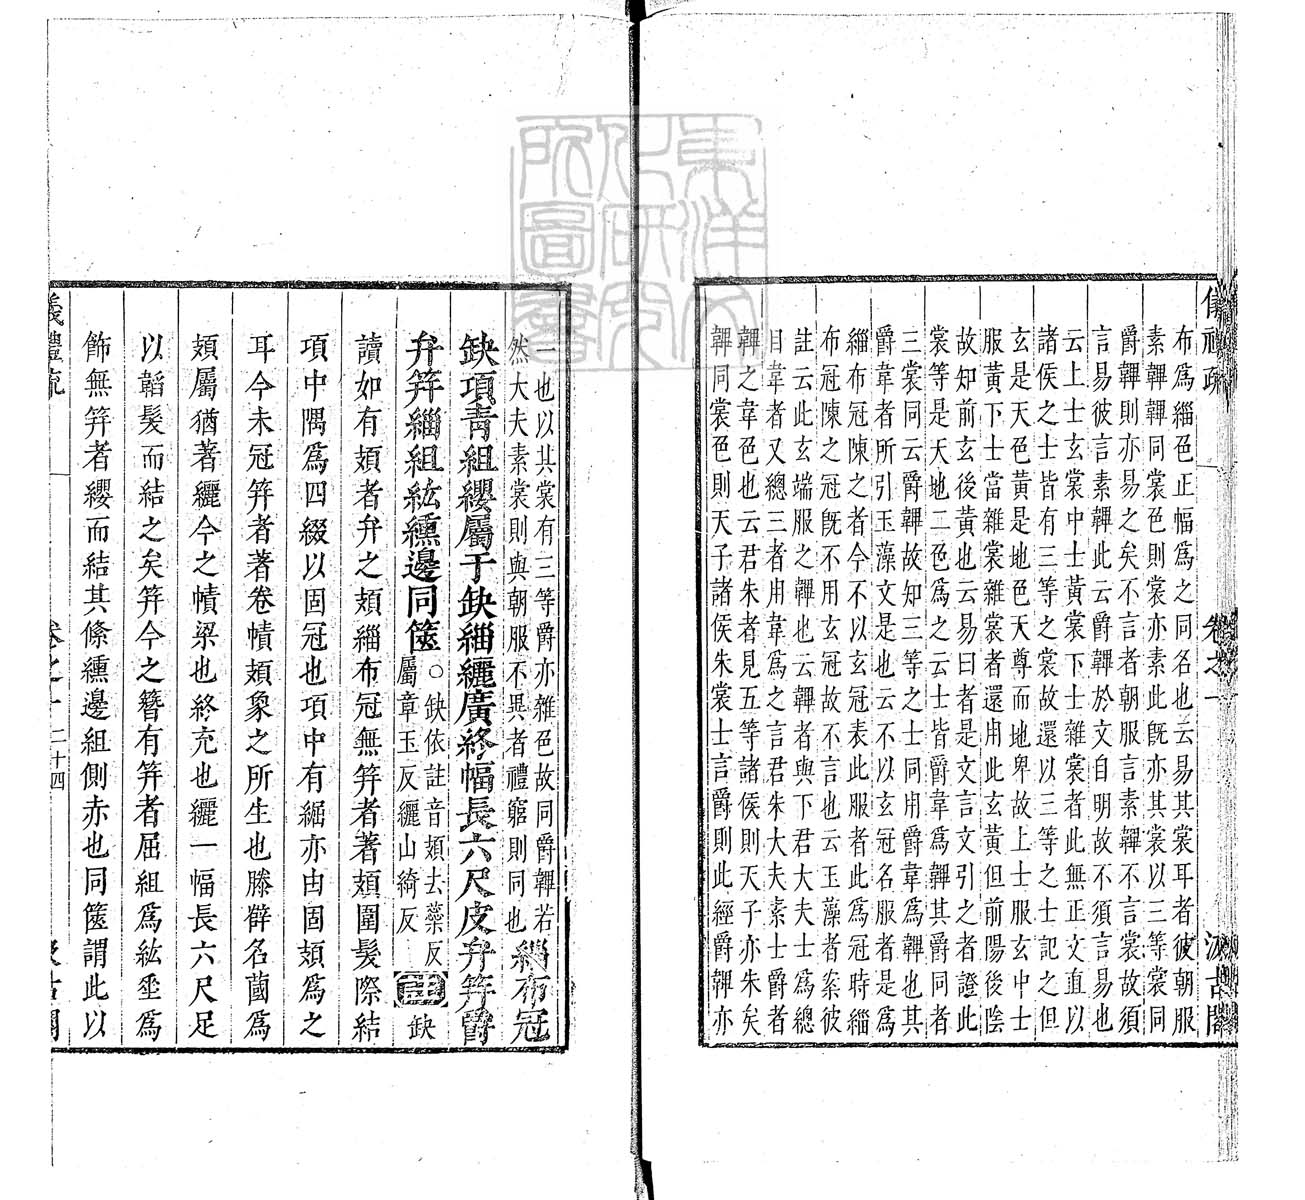 布爲緇色正幅爲之同名也云易其裳耳者彼朝服
素韠同裳色則裳亦素此旣亦其裳以三等裳同
爵韠則亦易之矣不言者朝服言素韠不言裳故須
言易彼言素韠此云爵韠於文自明故不須言易也
云上士玄裳中士黃裳下士雜裳者此無正文直以
諸侯之士皆有三等之裳故還以三等之士記之但
玄是天色黃是地色天尊而地卑故上士服玄中士
服黃下士當雜裳雜裳者還用此玄黃但前陽後陰
故知前玄後黃也云易曰者是文言文引之者證此
裳等是天地二色爲之云士皆爵韋爲韠其爵同者
三裳同云爵韠故知三等之士同用爵韋爲韠也其
爵韋者所引玉藻文是也云不以玄冠名服者是爲
緇布冠陳之者今不以玄冠表此服者此爲冠時緇
布冠陳之冠旣不用玄冠故不言也云玉藻者案彼
註云此玄端服之韠也云韠者與下君大夫士爲總
目韋者又總三者用韋爲之言君朱大夫素士爵者
韠之韋色也云君朱者見五等諸侯則天子亦朱矣
韠同裳色則天子諸侯朱裳士言爵則此經爵韠亦
儀禮疏 卷之一 汲古閣
一也以其裳有三等爵亦雜色故同爵韠若
然大夫素裳則與朝服不異者禮窮則同也 緇布冠
缺項青組纓屬于缺緇纚廣終幅長六尺皮弁笄爵
弁笄緇組紘纁邊同篋 ○缺依註音頍去蘂反
屬章玉反纚山綺反 註 缺
讀如有頍者弁之頍緇布冠無笄者著頍圍髮際結
項中隅爲四綴以固冠也項中有𦃃亦由固頍爲之
耳今未冠笄者著卷幘頍象之所生也滕薛名蔮爲
頍屬猶著纚今之幘梁也終充也纚一幅長六尺足
以韜髮而結之矣笄今之簪有笄者屈組爲紘垂爲
飾無笄者纓而結其絛纁邊組側赤也同篋謂此以
儀禮疏 卷之一 二十四 汲古閣
東洋文化研究所圖書